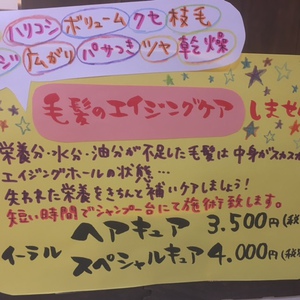 ハリコシ ボリューム クセ 枝毛
ジ 広がり パサつき ツヤ 乾燥
毛髪のエイジングケア しませ
栄養分・水分・油分が不足した毛髪は中身がスカスカ
エイジングホールの状態…
失われた栄養をきちんと補いケアしましょう!
短い時間でシャンプー台にて施術致します。
ヘアキュア 3.500円(税
イーラル スペシャルキュア 4.000円(税